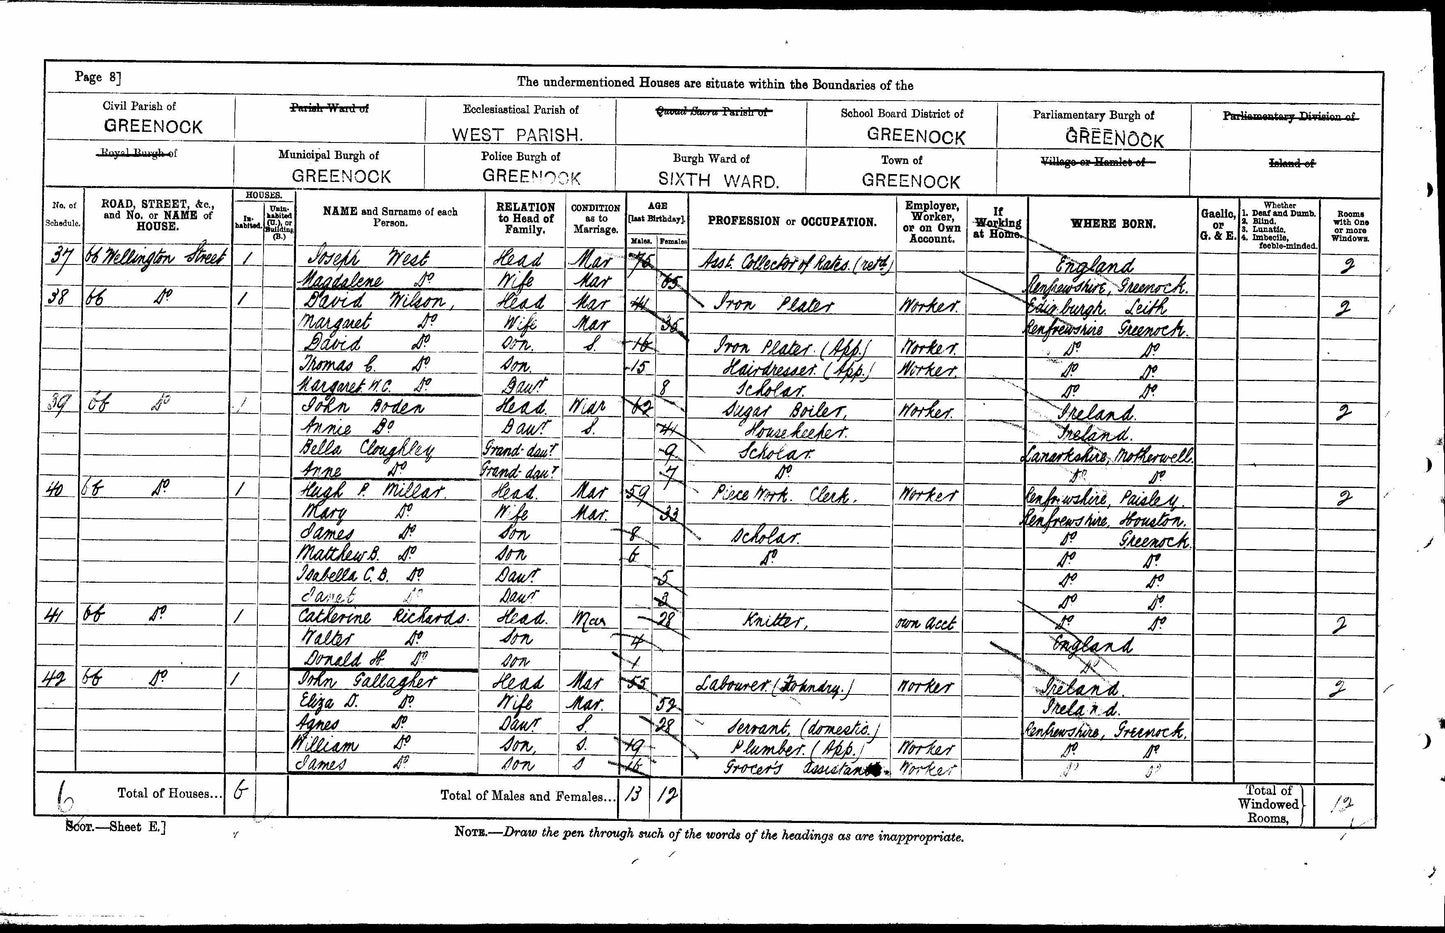 Page 8]
The undermentioned Houses are situate within the Boundaries of the
Civil Parish of GREENOCK
Parish Ward of
Ecclesiastical Parish of WEST PARISH.
Quoad Sacra Parish of
School Board District of GREENOCK
Parliamentary Burgh of GREENOCK
Parliamentary Division of
Royal Burgh of
Municipal Burgh of GREENOCK
Police Burgh of GREENOCK
Burgh Ward of SIXTH WARD.
Town of GREENOCK
Village or Hamlet of
Island of
No. of Schedule.
ROAD, STREET, &c., and No. or NAME of HOUSE.
HOUSES. In-habited. Unin-habited (U.), or Building (B.)
NAME and Surname of each Person.
RELATION to Head of Family.
CONDITION as to Marriage.
AGE [last Birthday]. Males. Females
PROFESSION or OCCUPATION.
Employer, Worker, or on Own Account.
If Working at Home.
WHERE BORN.
Gaelic, or G. & E.
Whether 1. Deaf and Dumb. 2. Blind. 3. Lunatic. 4. Imbecile, feeble-minded.
Rooms with One or more Windows.
37 66 Wellington Street 1 Joseph West Head Mar 75 Asst. Collector of Rates. (retd) England 2
Magdalene Do Wife Mar 65 Renfrewshire, Greenock.
38 66 Do 1 David Wilson, Head Mar 41 Iron Plater Worker. Edinburgh. Leith 2
Margaret Do Wife Mar 35 Renfrewshire Greenock.
David Do Son. S. 16 Iron Plater. (App.) Worker. Do Do
Thomas C. Do Son. 15 Hairdresser. (App.) Worker. Do Do
Margaret Mc. Do Daur 8 Scholar. Do Do
39 66 Do 1 John Boden Head. Widr 62 Sugar Boiler, Worker. Ireland. 2
Annie Do Daur S. 41 Housekeeper. Ireland.
Bella Cloughley Grand-daur 9 Scholar. Lanarkshire, Motherwell.
Anne Do Grand-daur 7 Do Do Do
40 66 Do 1 Hugh P. Millar Head. Mar 59 Piece Work Clerk. Worker Renfrewshire, Paisley. 2
Mary Do Wife Mar. 33 Renfrewshire, Houston.
James Do Son 8 Scholar. Do Greenock.
Matthew B. Do Son 6 Do Do Do
Isabella C. B. Do Daur 5 Do Do
Janet Do Daur 3 Do Do
41 66 Do 1 Catherine Richards. Head. Mar 28 Knitter, own acct Do Do 2
Walter Do Son 4 England
Donald H Do Son 1 Do
42 66 Do 1 John Gallagher Head Mar 55 Labourer. (Foundry.) Worker Ireland. 2
Eliza D. Do Wife Mar. 52 Ireland.
Agnes Do Daur S. 28 Servant, (domestic.) Renfrewshire, Greenock.
William Do Son, S. 19 Plumber. (App.) Worker Do Do
James Do Son S 16 Grocers assistant. Worker Do Do
6 Total of Houses... 6 Total of Males and Females... 13 12 Total of Windowed Rooms, 12
Scot.—Sheet E.]
NOTE.—Draw the pen through such of the words of the headings as are inappropriate.